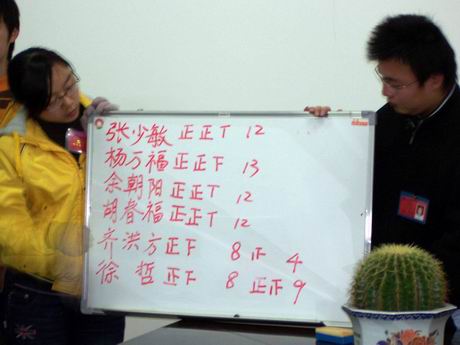 张少敏 正正丅 12
杨万福 正正下 13
余朝阳 正正丅 12
胡春福 正正丅 12
齐洪方 正下 8 正 4
徐哲 正下 8 正正 9